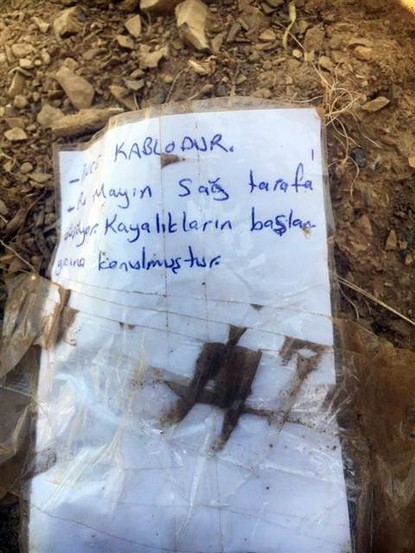 KABLODUR.
- Bu Mayın Sağ tarafa
Kayalıkların başlan-
gıcına konulmuştur.